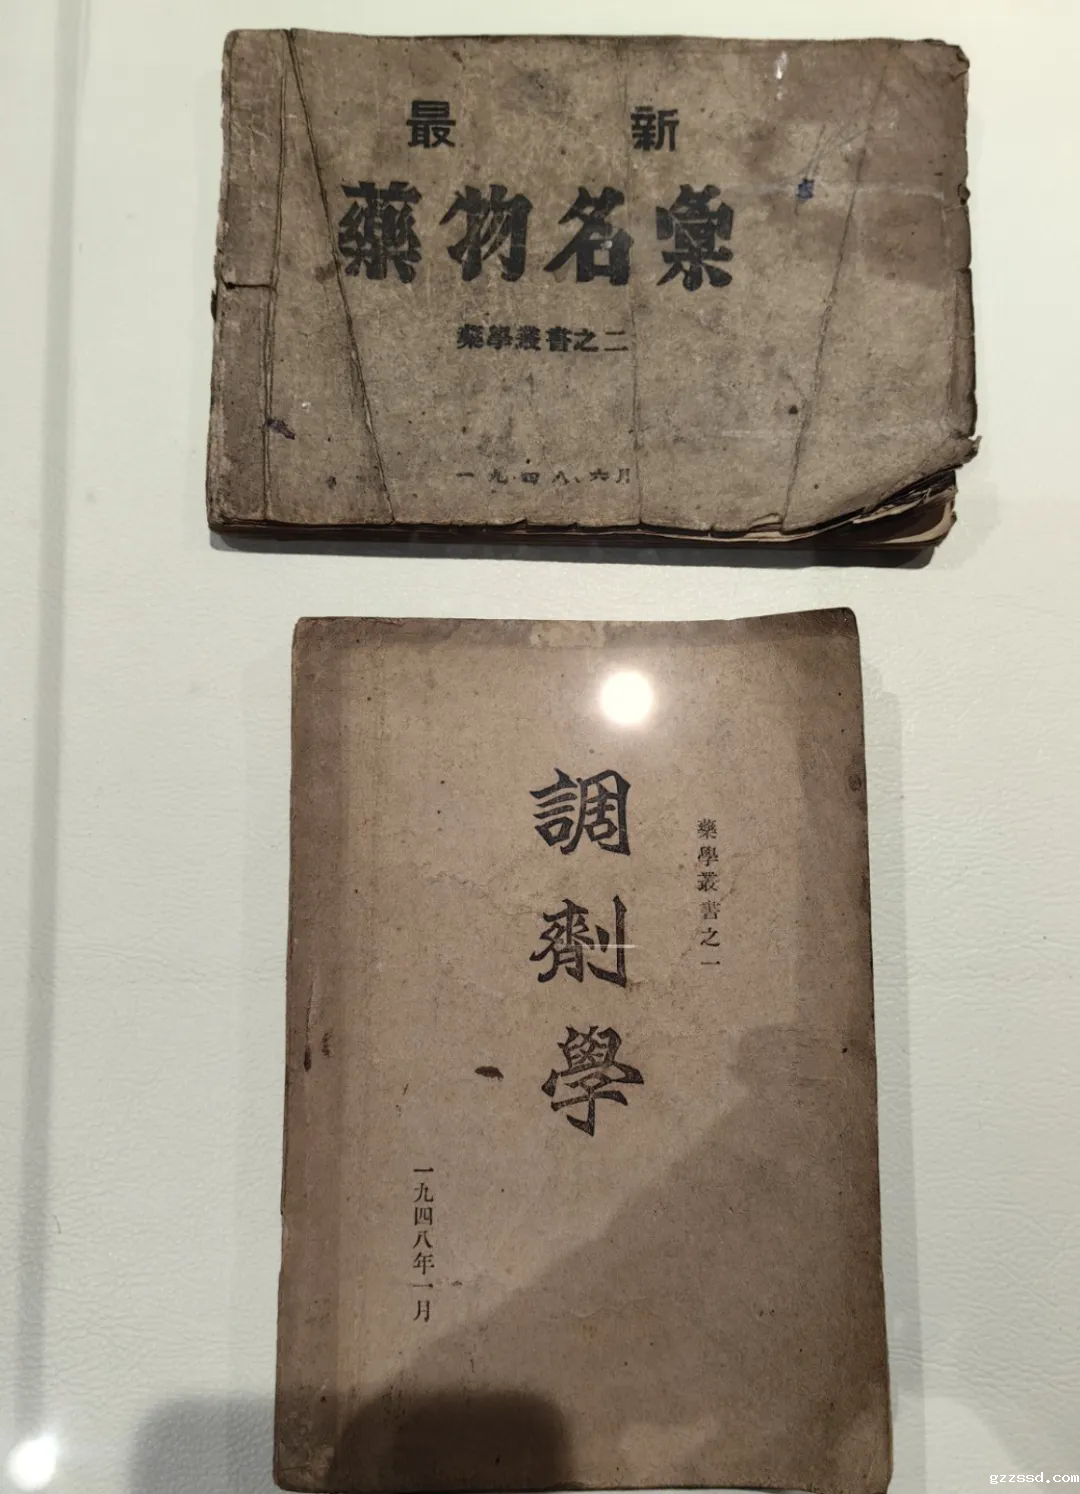 最新
藥物名彙
藥學叢書之二
一九四八、六月
藥學叢書之一
調劑學
一九四八年一月
gzzssd.com